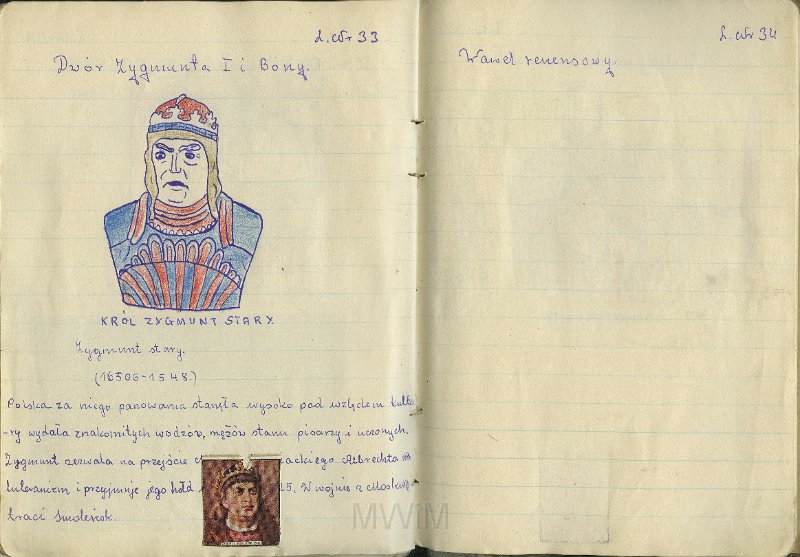 L. cdr 33
Dwór Zygmunta I i Bony.
KRÓL ZYGMUNT STARY.
Zygmunt stary.
(16506-1548.)
Polska za niego panowania stanęła wysoko pod względem kultu
-ry wydała znakomitych wodzów, mężów stanu pisarzy i uczonych.
Zygmunt zezwala na przejście ackiego Albrechta na
luteranizm i przyjmuje jego hołd 5. W wojnie z Moskwą
traci Smoleńsk.
L. cdr 34
Wawel renensowy.
MWiM